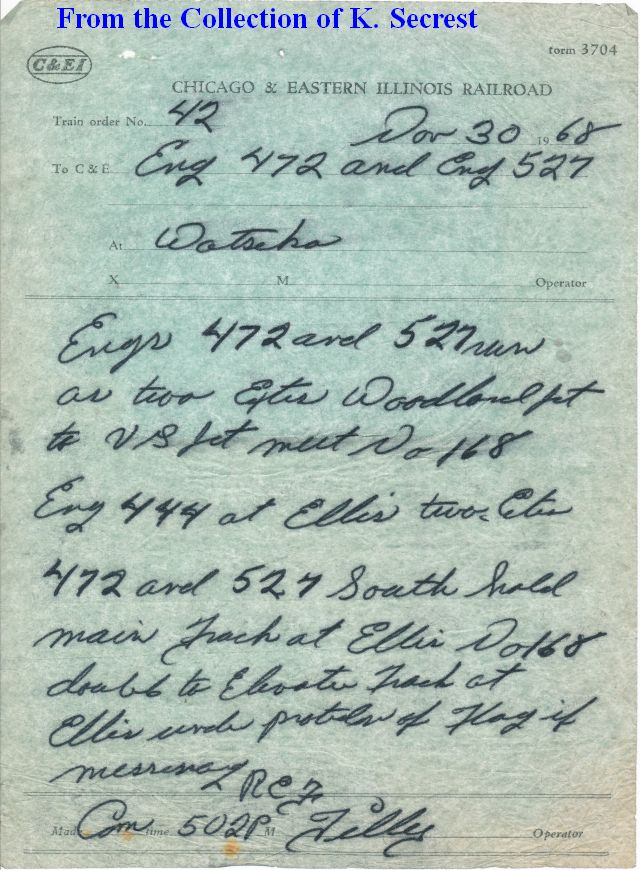 From the Collection of K. Secrest
C&EI
form 3704
CHICAGO & EASTERN ILLINOIS RAILROAD
Train order No. 42
Nov 30 1968
To C & E Eng 472 and Eng 527
At Watseka
X M Operator
Engs 472 and 527 run
as two Extras Woodland Jct
to VS Jct meet No 168
Eng 444 at Ellis two Extras
472 and 527 South hold
main track at Ellis No 168
double to Elevator track at
Ellis under protection of flag if
necessary RCF
Made Com time 502P M Tilly Operator